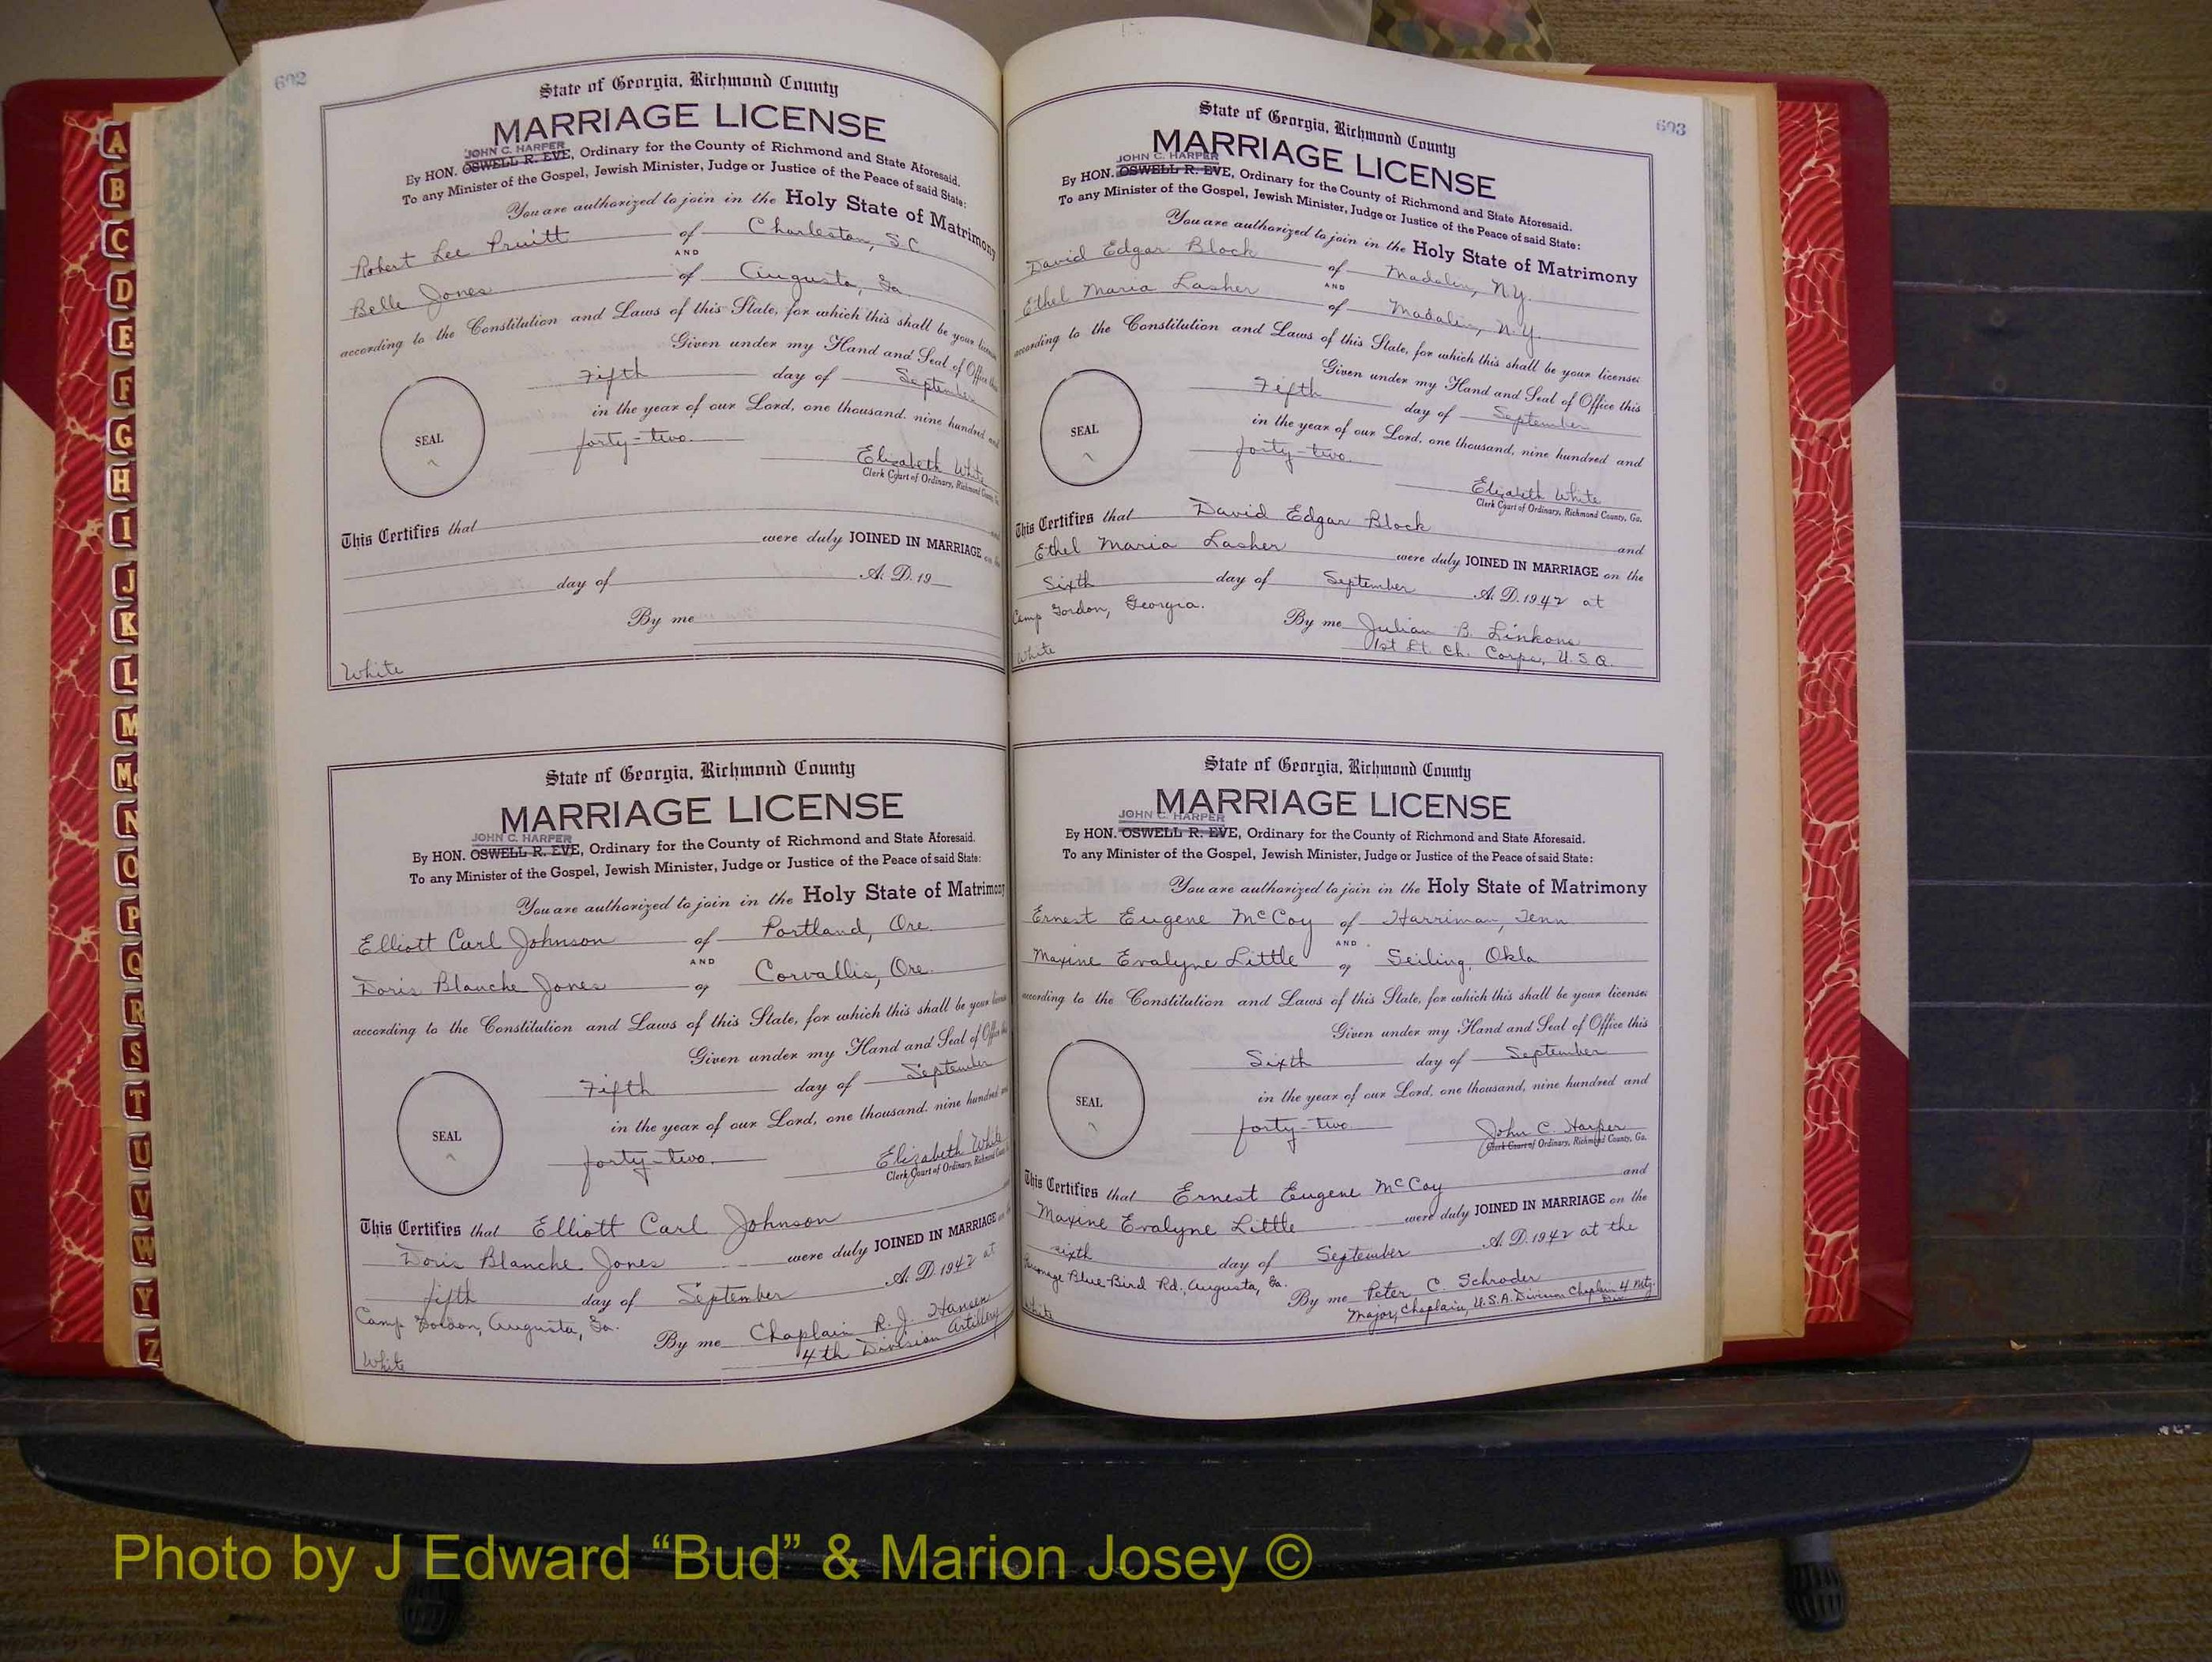 692
State of Georgia, Richmond County
MARRIAGE LICENSE
JOHN C. HARPER
By HON. OSWELL R. EVE, Ordinary for the County of Richmond and State Aforesaid.
To any Minister of the Gospel, Jewish Minister, Judge or Justice of the Peace of said State:
You are authorized to join in the Holy State of Matrimony
Robert Lee Pruitt of Charleston, S.C.
AND
Belle Jones of Augusta, Ga.
according to the Constitution and Laws of this State, for which this shall be your license
Given under my Hand and Seal of Office this
Fifth day of September
in the year of our Lord, one thousand, nine hundred and
SEAL
forty-two.
Elizabeth White
Clerk Court of Ordinary, Richmond County, Ga.
This Certifies that and
were duly JOINED IN MARRIAGE on the
day of A. D. 19
By me
White
State of Georgia, Richmond County
MARRIAGE LICENSE
JOHN C. HARPER
By HON. OSWELL R. EVE, Ordinary for the County of Richmond and State Aforesaid.
To any Minister of the Gospel, Jewish Minister, Judge or Justice of the Peace of said State:
You are authorized to join in the Holy State of Matrimony
Elliott Carl Johnson of Portland, Ore.
AND
Doris Blanche Jones of Corvallis, Ore.
according to the Constitution and Laws of this State, for which this shall be your license
Given under my Hand and Seal of Office this
Fifth day of September
in the year of our Lord, one thousand, nine hundred and
SEAL
forty-two.
Elizabeth White
Clerk Court of Ordinary, Richmond County
This Certifies that Elliott Carl Johnson
Doris Blanche Jones were duly JOINED IN MARRIAGE on the
fifth day of September A. D. 1942 at
Camp Gordon, Augusta, Ga. By me Chaplain R. J. Hansen
4th Division Artillery
White
693
State of Georgia, Richmond County
MARRIAGE LICENSE
JOHN C. HARPER
By HON. OSWELL R. EVE, Ordinary for the County of Richmond and State Aforesaid.
To any Minister of the Gospel, Jewish Minister, Judge or Justice of the Peace of said State:
You are authorized to join in the Holy State of Matrimony
David Edgar Block of Madalin, N.Y.
AND
Ethel Maria Lasher of Madalin, N.Y.
according to the Constitution and Laws of this State, for which this shall be your license:
Given under my Hand and Seal of Office this
Fifth day of September
in the year of our Lord, one thousand, nine hundred and
SEAL
forty-two.
Elizabeth White
Clerk Court of Ordinary, Richmond County, Ga.
This Certifies that David Edgar Block and
Ethel Maria Lasher were duly JOINED IN MARRIAGE on the
Sixth day of September A. D. 1942 at
Camp Gordon, Georgia. By me Julian B. Linkous
1st Lt. Ch. Corps, U.S.A.
White
State of Georgia, Richmond County
MARRIAGE LICENSE
JOHN C. HARPER
By HON. OSWELL R. EVE, Ordinary for the County of Richmond and State Aforesaid.
To any Minister of the Gospel, Jewish Minister, Judge or Justice of the Peace of said State:
You are authorized to join in the Holy State of Matrimony
Ernest Eugene McCoy of Harriman, Tenn
AND
Maxine Evalyne Little of Seiling, Okla
according to the Constitution and Laws of this State, for which this shall be your license:
Given under my Hand and Seal of Office this
Sixth day of September
in the year of our Lord, one thousand, nine hundred and
SEAL
forty-two
John C. Harper
Clerk Court of Ordinary, Richmond County, Ga.
This Certifies that Ernest Eugene McCoy and
Maxine Evalyne Little were duly JOINED IN MARRIAGE on the
sixth day of September A. D. 1942 at the
Blue Bird Rd., Augusta, Ga. By me Peter C. Schroder
Major, Chaplain, U.S.A. Division Chaplain 4 Mtz. Div.
White
A
B
C
D
E
F
G
H
I
J
K
L
M
Mc
N
O
P
Q
R
S
T
U
V
W
Y
Z
Photo by J Edward “Bud” & Marion Josey ©